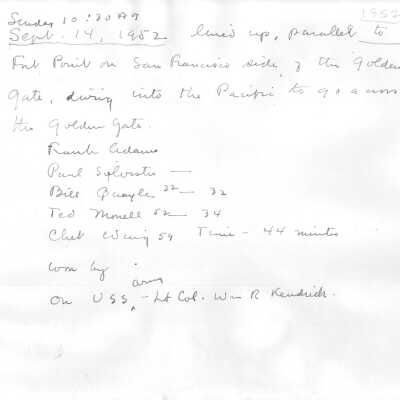 Sunday 10:30 AM 1952
Sept. 14, 1952 lined up, parallel to
Fort Point on San Francisco side, of the Golden
Gate, diving into the Pacific to go across
the Golden Gate.
Frank Adams
Paul Sylvester —
Bill Quayle 22 — 32
Ted Morell 52 — 34
Chet 59 Time - 44 minutes
won by
army
On USS - Lt Col. Wm R Kendrick.